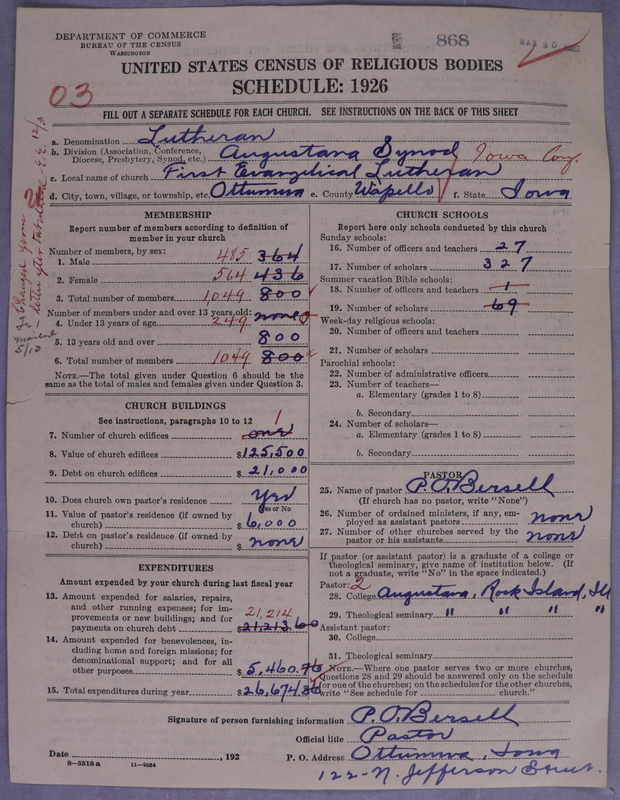 DEPARTMENT OF COMMERCE
BUREAU OF THE CENSUS
WASHINGTON
868
MAR 30
UNITED STATES CENSUS OF RELIGIOUS BODIES
SCHEDULE: 1926
03
FILL OUT A SEPARATE SCHEDULE FOR EACH CHURCH. SEE INSTRUCTIONS ON THE BACK OF THIS SHEET
a. Denomination Lutheran
b. Division (Association, Conference, Diocese, Presbytery, Synod, etc.) Augustana Synod Iowa Conf.
c. Local name of church First Evangelical Lutheran
d. City, town, village, or township, etc. Ottumwa e. County Wapello f. State Iowa
MEMBERSHIP
Report number of members according to definition of
member in your church
Number of members, by sex:
1. Male 485 364
2. Female 564 436
3. Total number of members 1049 800
Number of members under and over 13 years old:
4. Under 13 years of age 249 none
5. 13 years old and over 800
6. Total number of members 1049 800
NOTE.—The total given under Question 6 should be
same as the total of males and females given under Question 3.
CHURCH BUILDINGS
See instructions, paragraphs 10 to 12
7. Number of church edifices one 1
8. Value of church edifices $125,500
9. Debt on church edifices $21,000
10. Does church own pastor's residence Yes
Yes or No
11. Value of pastor's residence (if owned by
church) $6,000
12. Debt on pastor's residence (if owned by
church) $none
EXPENDITURES
Amount expended by your church during last fiscal year
13. Amount expended for salaries, repairs,
and other running expenses; for im-
provements or new buildings; and for
payments on church debt 21,214 $21,213.60
14. Amount expended for benevolences, in-
cluding home and foreign missions; for
denominational support; and for all
other purposes $5,460.76
15. Total expenditures during year $26,674.36
CHURCH SCHOOLS
Report here only schools conducted by this church
Sunday schools:
16. Number of officers and teachers 27
17. Number of scholars 327
Summer vacation Bible schools:
18. Number of officers and teachers 1
19. Number of scholars 69
Week-day religious schools:
20. Number of officers and teachers
21. Number of scholars
Parochial schools:
22. Number of administrative officers
23. Number of teachers—
a. Elementary (grades 1 to 8)
b. Secondary
24. Number of scholars—
a. Elementary (grades 1 to 8)
b. Secondary
PASTOR
25. Name of pastor P.O. Bersell
(If church has no pastor, write "None")
26. Number of ordained ministers, if any, em-
ployed as assistant pastors none
27. Number of other churches served by the
pastor or his assistants none
If pastor (or assistant pastor) is a graduate of a college or
theological seminary, give name of institution below. (If
not a graduate, write "No" in the space indicated.)
Pastor: 2
28. College Augustana, Rock Island, Ill
29. Theological seminary " " " "
Assistant pastor:
30. College
31. Theological seminary
NOTE.—Where one pastor serves two or more churches,
Questions 28 and 29 should be answered only on the schedule
for one of the churches; on the schedules for the other churches,
write "See schedule for church."
Signature of person furnishing information P.O. Bersell
Official title Pastor
Date , 192 P. O. Address Ottumwa, Iowa
122-N. Jefferson Street.
8—5518 a 11—9684